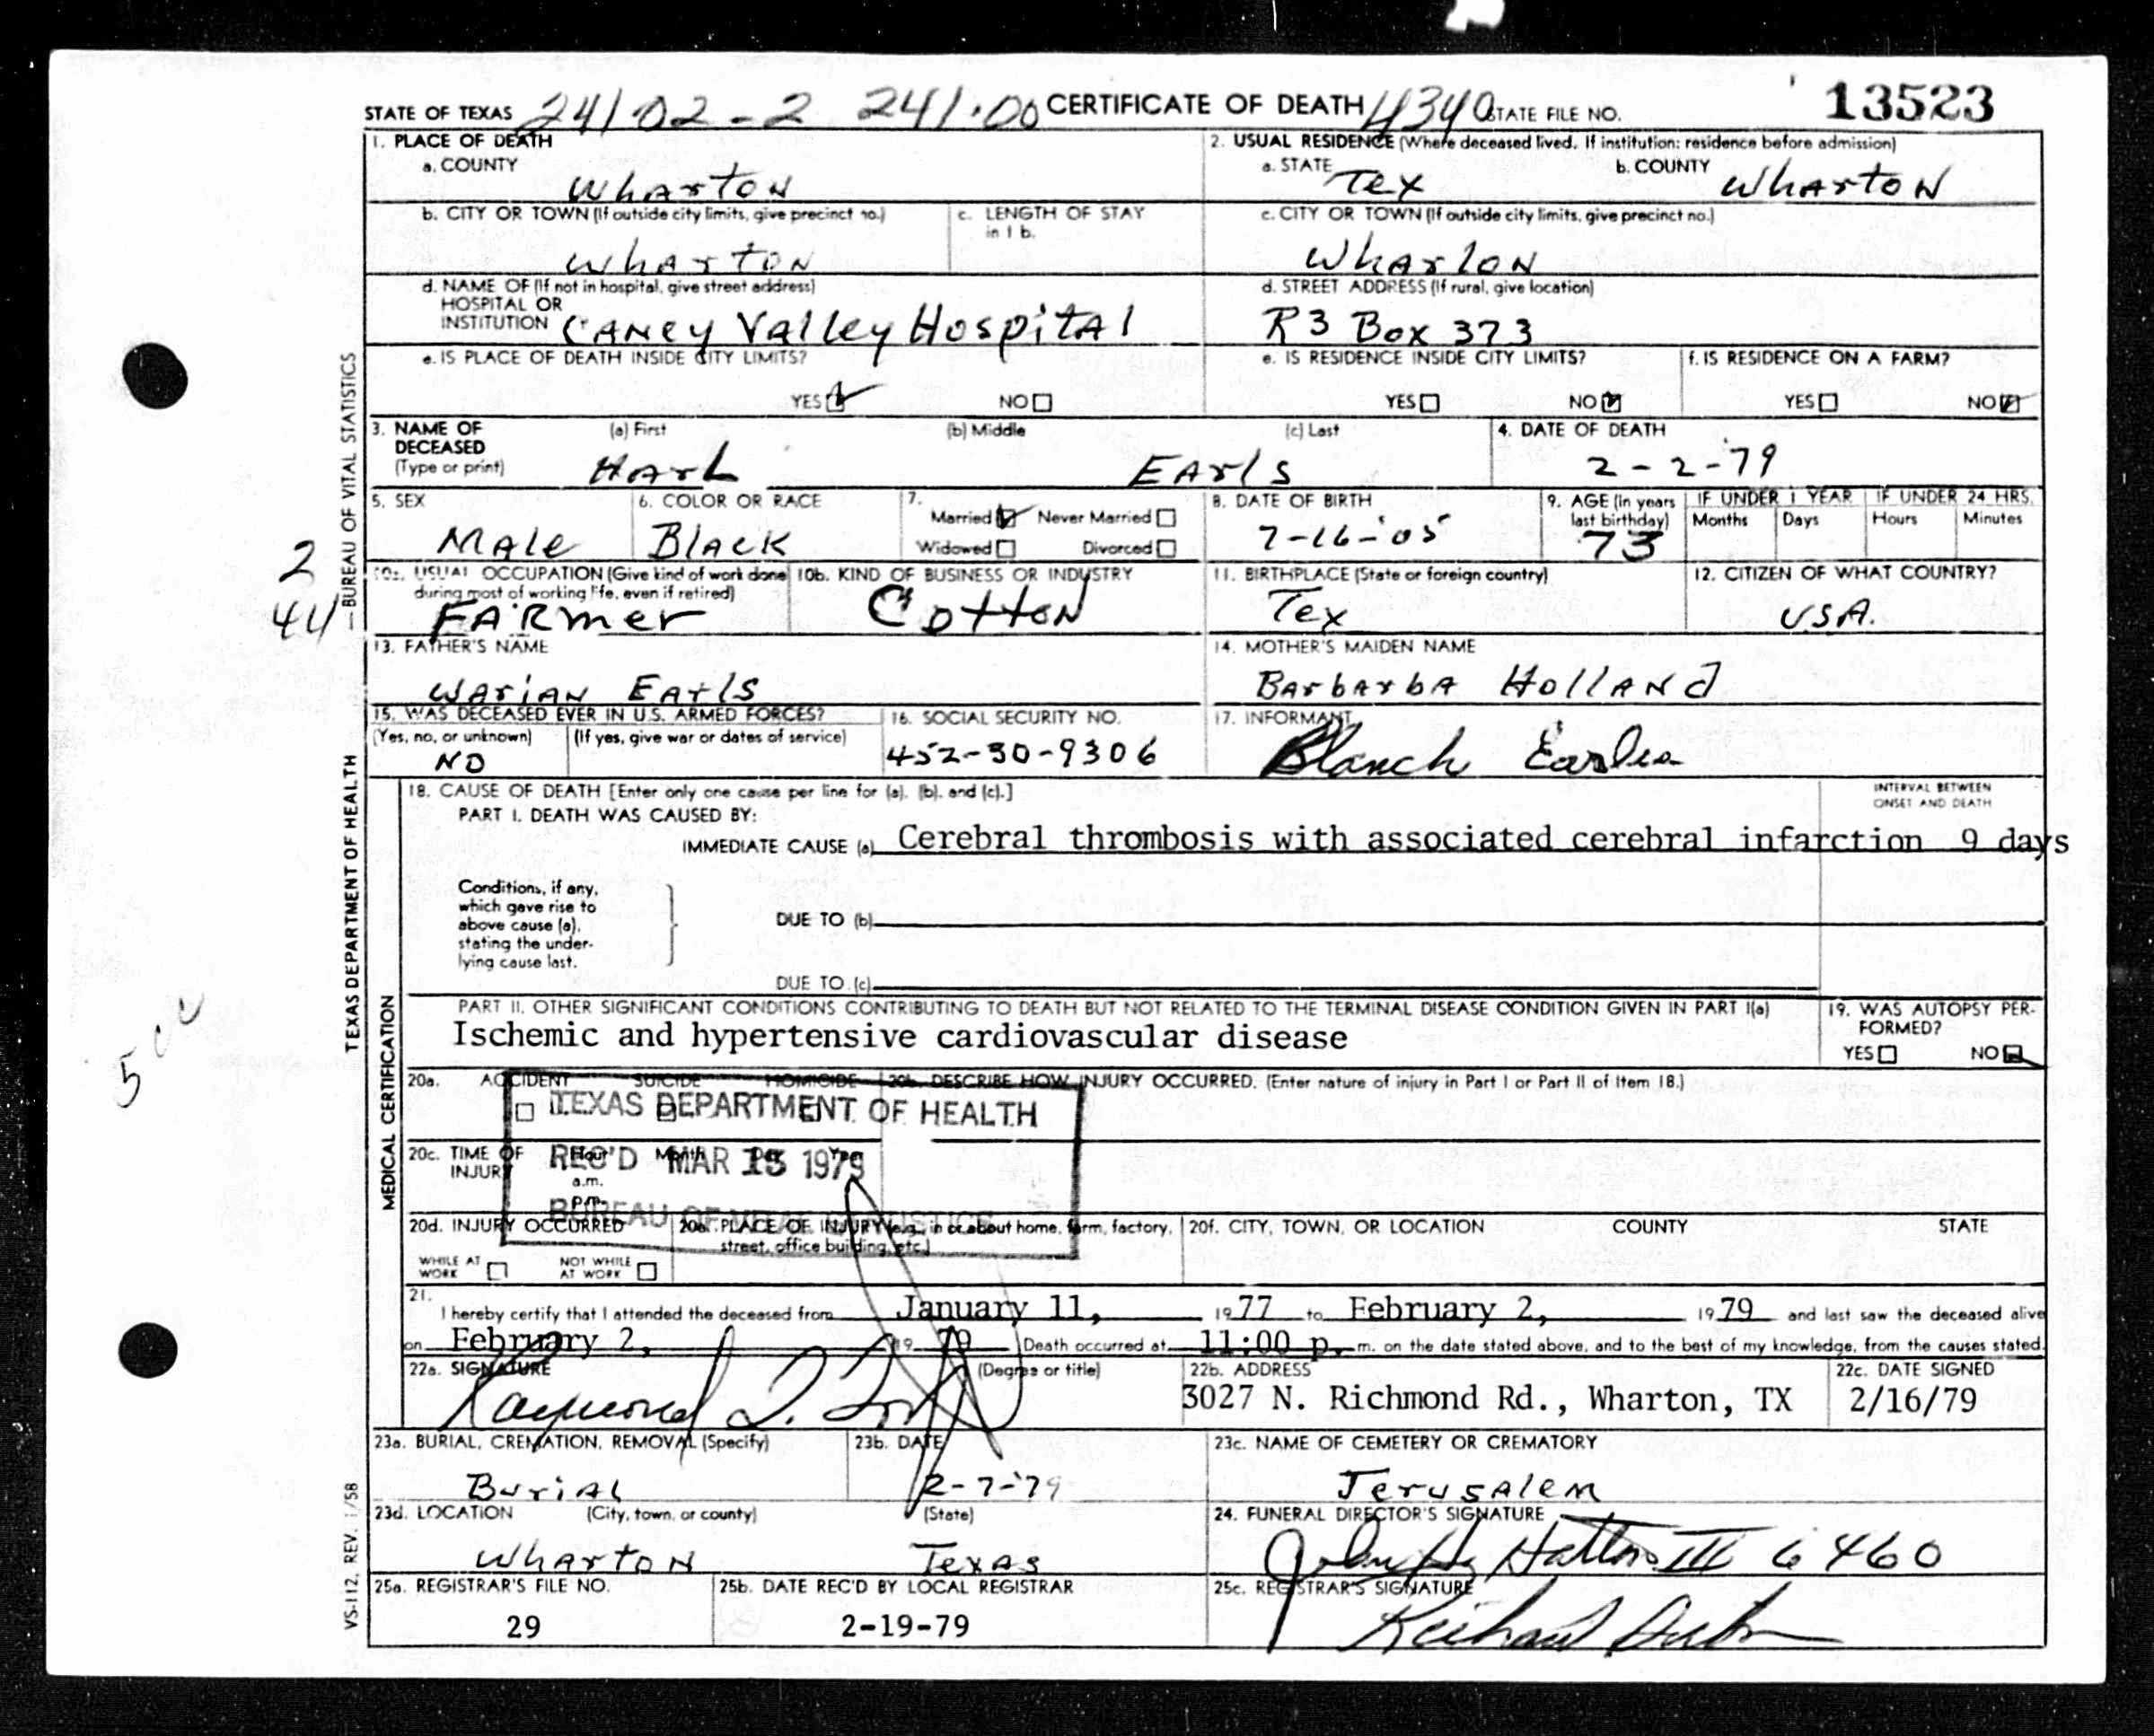 13523
STATE OF TEXAS 24102-2 241.00 CERTIFICATE OF DEATH 4340 STATE FILE NO.
1. PLACE OF DEATH
a. COUNTY
Wharton
2. USUAL RESIDENCE (Where deceased lived. If institution: residence before admission)
a. STATE Tex b. COUNTY Wharton
b. CITY OR TOWN (If outside city limits, give precinct no.)
Wharton
c. LENGTH OF STAY
in 1 b.
c. CITY OR TOWN (If outside city limits, give precinct no.)
Wharlon
d. NAME OF (If not in hospital, give street address)
HOSPITAL OR
INSTITUTION Caney Valley Hospital
d. STREET ADDRESS (If rural, give location)
R3 Box 373
e. IS PLACE OF DEATH INSIDE CITY LIMITS?
YES NO
e. IS RESIDENCE INSIDE CITY LIMITS?
YES NO
f. IS RESIDENCE ON A FARM?
YES NO
3. NAME OF
DECEASED
(Type or print)
(a) First (b) Middle (c) Last
Earls
4. DATE OF DEATH
2-2-'79
5. SEX
Male
6. COLOR OR RACE
Black
7.
Married Never Married
Widowed Divorced
8. DATE OF BIRTH
7-16-'05
9. AGE (in years
last birthday)
73
IF UNDER 1 YEAR
Months Days
IF UNDER 24 HRS.
Hours Minutes
10a. USUAL OCCUPATION (Give kind of work done
during most of working life, even if retired)
Farmer
10b. KIND OF BUSINESS OR INDUSTRY
Cotton
11. BIRTHPLACE (State or foreign country)
Tex
12. CITIZEN OF WHAT COUNTRY?
U.S.A.
13. FATHER'S NAME
Warian Earls
14. MOTHER'S MAIDEN NAME
Barbarba Holland
15. WAS DECEASED EVER IN U.S. ARMED FORCES?
(Yes, no, or unknown) (If yes, give war or dates of service)
NO
16. SOCIAL SECURITY NO.
452-30-9306
17. INFORMANT
Blanch
18. CAUSE OF DEATH [Enter only one cause per line for (a), (b), and (c).]
INTERVAL BETWEEN
ONSET AND DEATH
PART I. DEATH WAS CAUSED BY:
IMMEDIATE CAUSE (a) Cerebral thrombosis with associated cerebral infarction 9 days
Conditions, if any,
which gave rise to
above cause (a),
stating the under-
lying cause last.
DUE TO (b)
DUE TO (c)
PART II. OTHER SIGNIFICANT CONDITIONS CONTRIBUTING TO DEATH BUT NOT RELATED TO THE TERMINAL DISEASE CONDITION GIVEN IN PART I(a)
Ischemic and hypertensive cardiovascular disease
19. WAS AUTOPSY PER-
FORMED?
YES NO
20a. ACCIDENT SUICIDE HOMICIDE
20b. DESCRIBE HOW INJURY OCCURRED. (Enter nature of injury in Part I or Part II of Item 18.)
TEXAS DEPARTMENT OF HEALTH
REC'D MAR 15 1979
BUREAU OF VITAL STATISTICS
20c. TIME OF
INJURY
Hour Month Day
a.m.
p.m.
20d. INJURY OCCURRED
WHILE AT
WORK
NOT WHILE
AT WORK
20e. PLACE OF INJURY (e.g., in or about home, farm, factory,
street, office building, etc.)
20f. CITY, TOWN, OR LOCATION COUNTY STATE
21.
I hereby certify that I attended the deceased from January 11, 1977 to February 2, 1979 and last saw the deceased alive
on February 2, 1979 Death occurred at 11:00 p.m. on the date stated above, and to the best of my knowledge, from the causes stated.
22a. SIGNATURE (Degree or title)
Raymond
22b. ADDRESS
3027 N. Richmond Rd., Wharton, TX
22c. DATE SIGNED
2/16/79
23a. BURIAL, CREMATION, REMOVAL (Specify)
Burial
23b. DATE
2-7-'79
23c. NAME OF CEMETERY OR CREMATORY
Jerusalem
23d. LOCATION (City, town, or county) (State)
Wharton Texas
24. FUNERAL DIRECTOR'S SIGNATURE
III 6460
25a. REGISTRAR'S FILE NO.
29
25b. DATE REC'D BY LOCAL REGISTRAR
2-19-79
25c. REGISTRAR'S SIGNATURE
Richard
TEXAS DEPARTMENT OF HEALTH — BUREAU OF VITAL STATISTICS
MEDICAL CERTIFICATION
VS-112, REV. 1/58
2
44